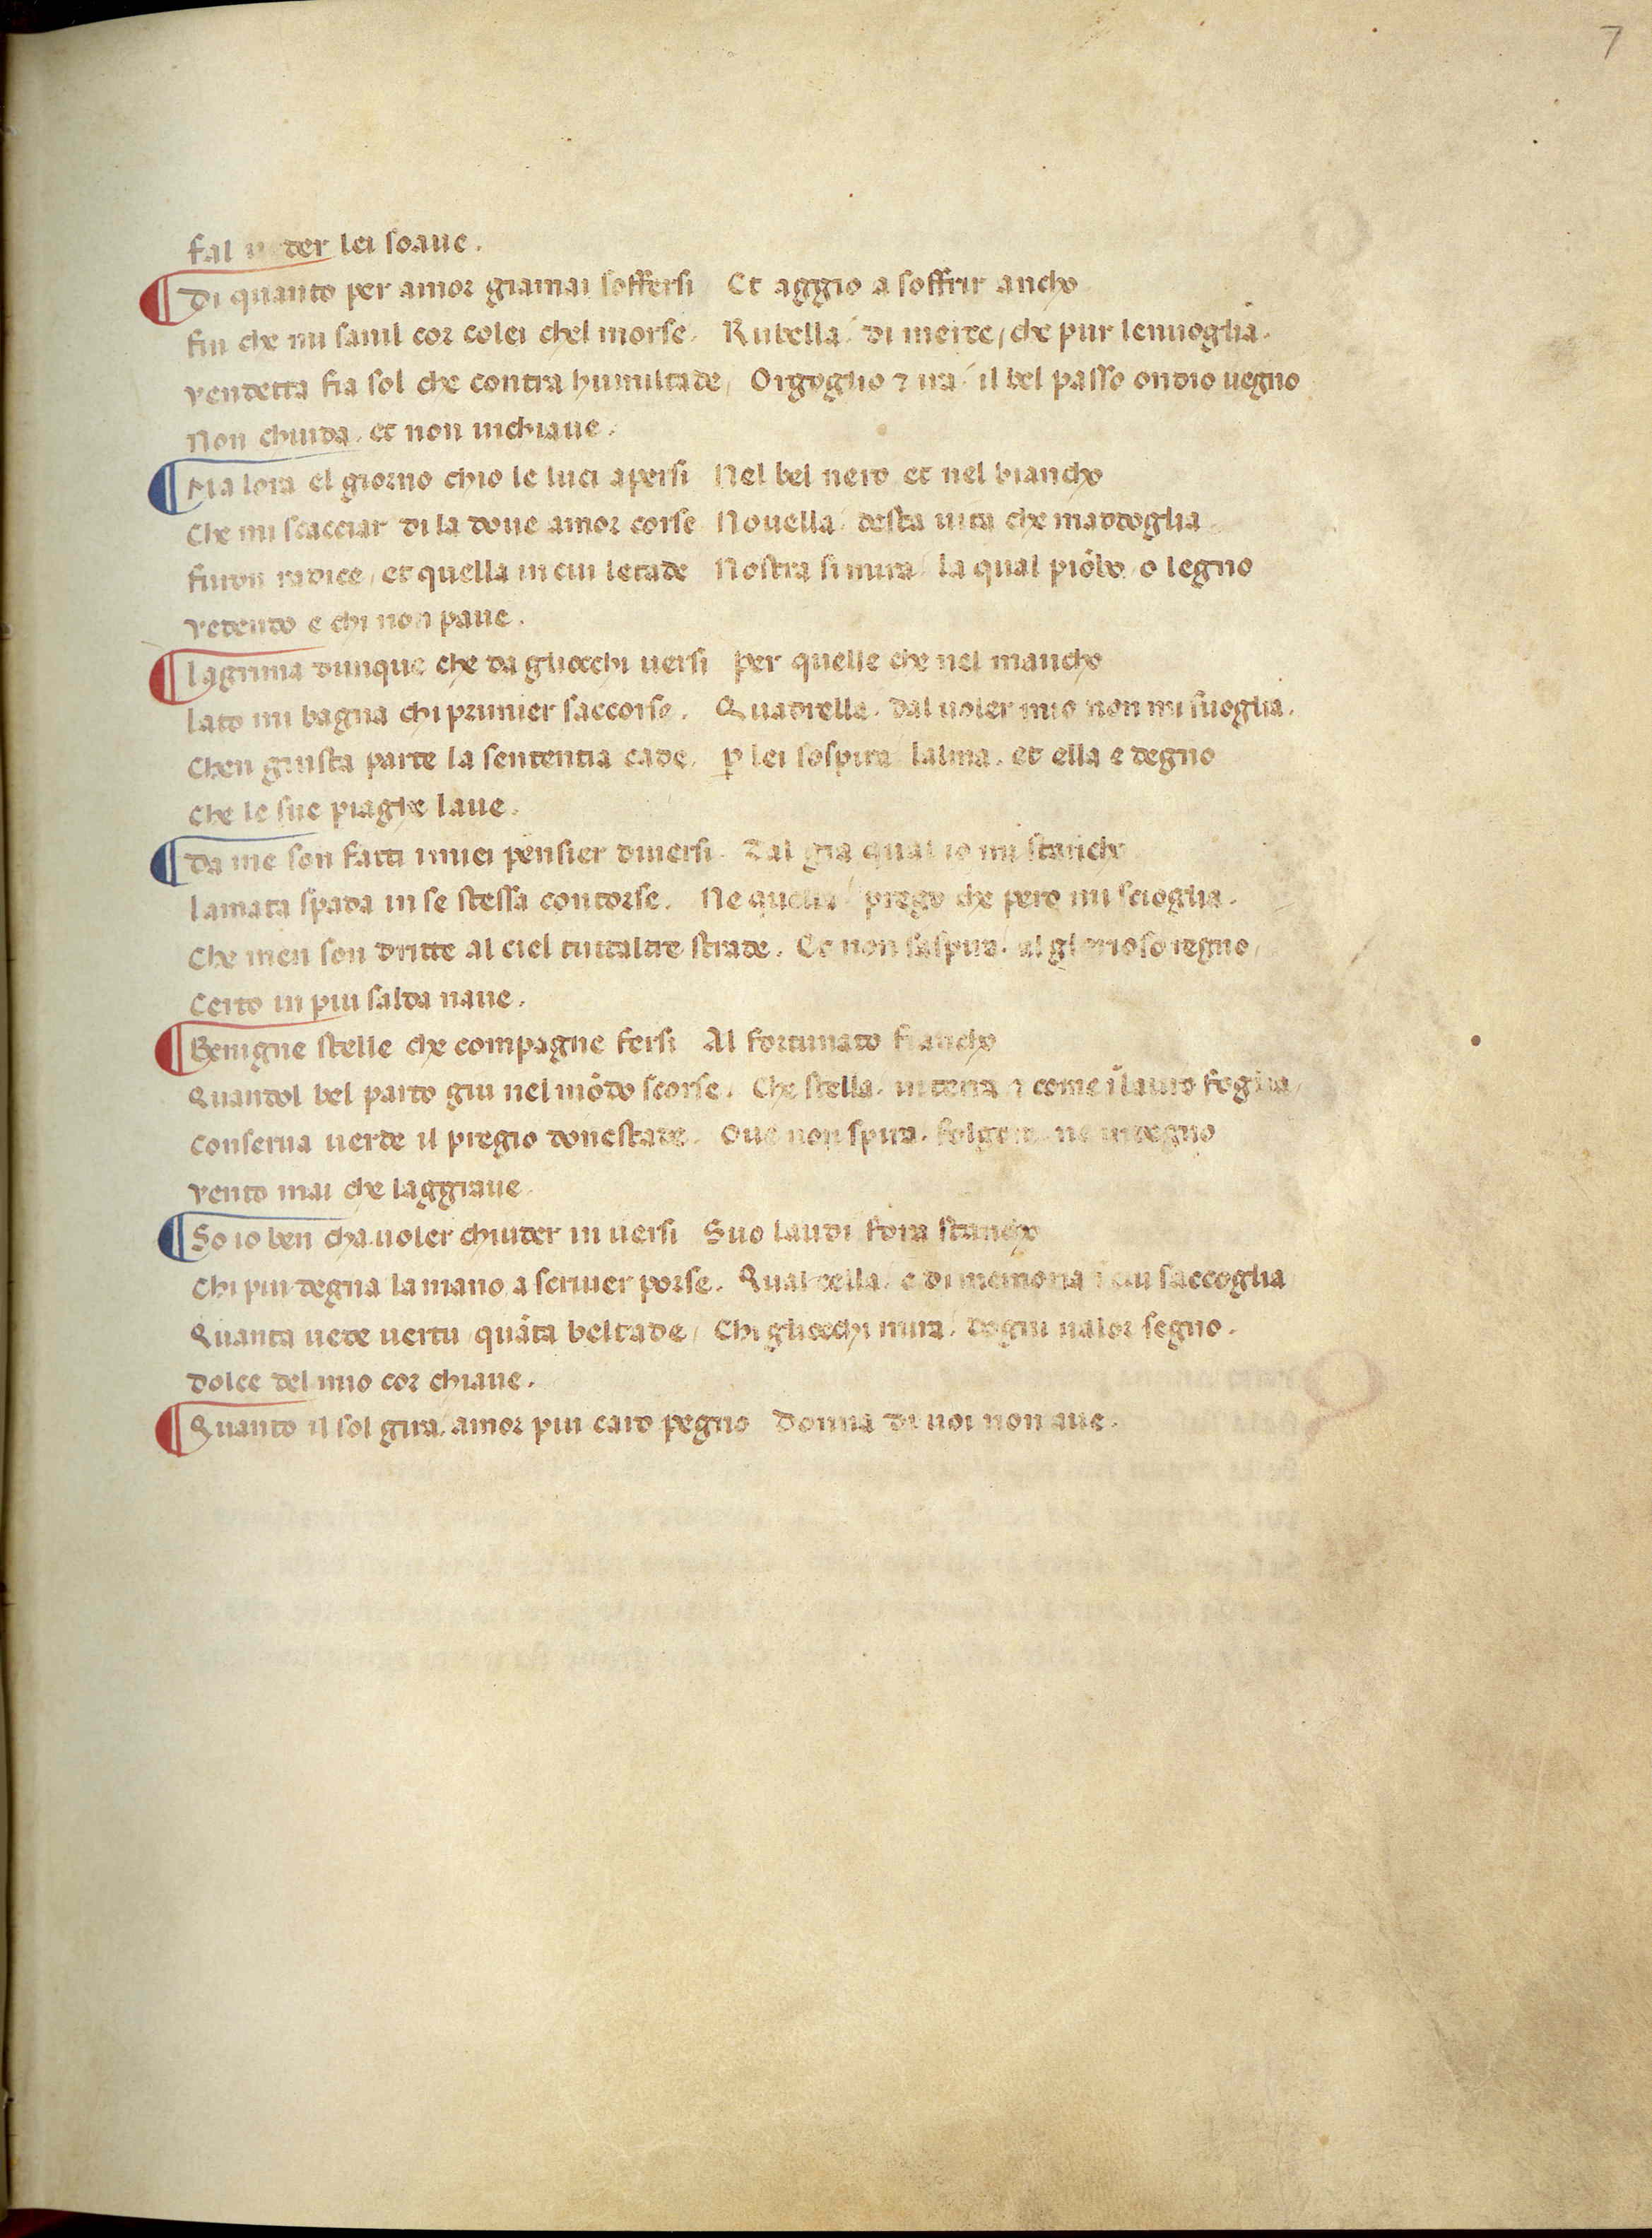 7
Fal ueder lei soaue.
Di quanto per amor giamai soffersi Et aggio a soffrir ancho
Fin che mi sanil cor colei chel morse. Rubella. di merce / che pur lenuoglia.
Vendetta fia sol che contra humiltade / Orgoglio ⁊ ira il bel passo ondio uegno
Non chiuda. et non inchiaue.
Ma lora el giorno chio le luci apersi Nel bel nero et nel biancho
Che mi scacciar di la doue amor corse Nouella. desta uita che maddoglia
Furon radice / et quella in cui letade Nostra si mira / la qual piōbo o legno
Vedendo e chi non paue.
Lagrima dunque che da gliocchi uersi Per quelle che nel mancho
Lato mi bagna chi primier saccorse. Quadrella. dal uoler mio non mi suoglia.
Chen giusta parte la sententia cade. ꝑ lei sospira lalma. et ella e degno
Che le sue piaghe laue.
Da me son fatti i miei pensier diuersi. Tal gia qual io mi stancho
Lamata spada in se stessa contorse. Ne quella prego che pero mi scioglia.
Che men son dritte al ciel tuttaltre strade. Et non saspira. al glorioso regno /
Certo in piu salda naue.
Benigne stelle che compagne fersi Al fortunato fiancho
Quandol bel parto giu nel mōdo scorse. Che stella. in terra ⁊ come ī lauro foglia
Conserua uerde il pregio donestade. Oue non spira. folgore. ne indegno
Vento mai che laggraue.
So io ben cha uoler chiuder in uersi Suo laudi fora stancho
Chi piu degna la mano a scriuer porse. Qual cella. e di memoria in cui saccoglia
Quanta uede uertu quāta beltade / Chi gliocchi mira. dogni ualor segno.
Dolce del mio cor chiaue.
Quanto il sol gira. amor piu caro pegno Donna di uoi non aue.